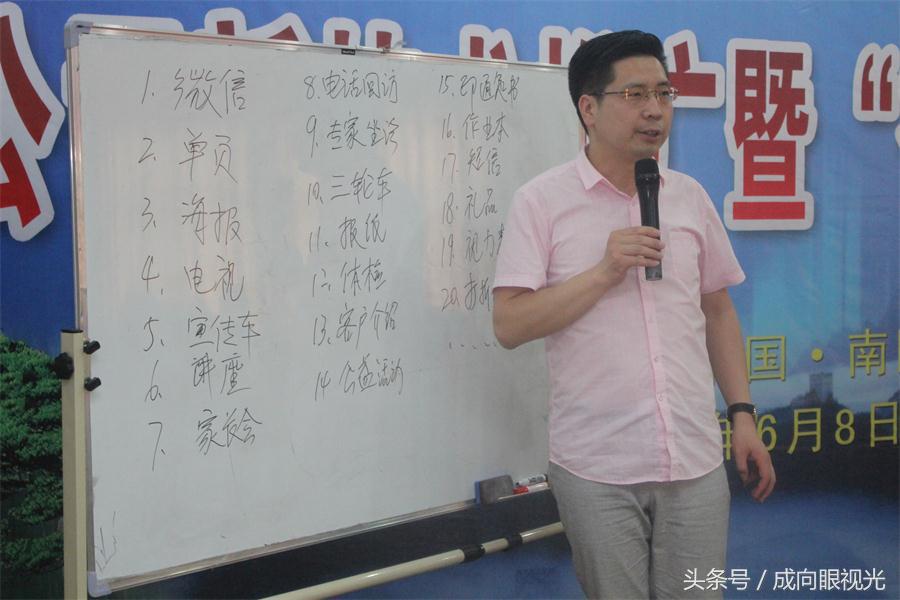 1. 微信
2. 单页
3. 海报
4. 电视
5. 宣传车
6. 讲座
7. 家长会
8. 电话回访
9. 专家坐诊
10. 三轮车
11. 报纸
12. 体检
13. 客户介绍
14. 公益活动
15. 印通知书
16. 作业本
17. 短信
18. 礼品
19. 视力
20.
......
公司
暨“
国·南
年6月8日
头条号 / 成向眼视光